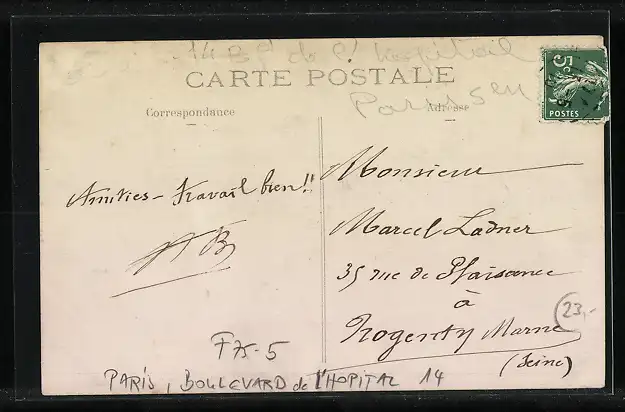 14 Bd de l'hopital
CARTE POSTALE
Paris 5eu
Correspondance
Adresse
5
POSTES
Amitiés - Travail bien!!
Monsieur
Marcel Ladner
35 rue de Plaisance
à
Nogent s/ Marne
(Seine)
23,-
F75-5
PARIS, BOULEVARD de l'HOPITAL 14